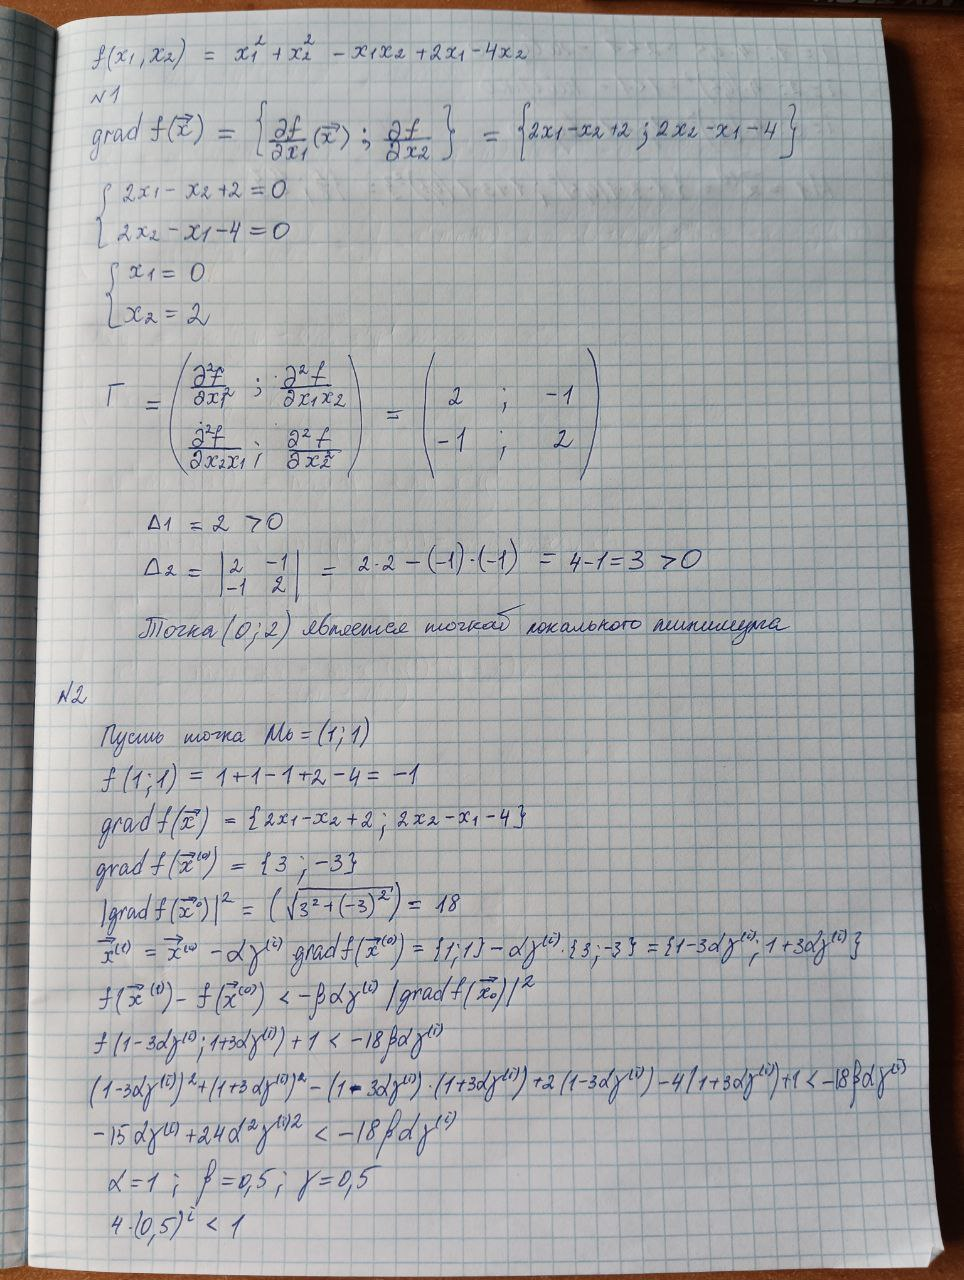 f(x1, x2) = x1² + x2² - x1x2 + 2x1 - 4x2
N1
grad f(x⃗) = {∂f/∂x1 (x⃗) ; ∂f/∂x2} = {2x1 - x2 + 2 ; 2x2 - x1 - 4}
{ 2x1 - x2 + 2 = 0
2x2 - x1 - 4 = 0
{ x1 = 0
x2 = 2
Г = (∂²f/∂x1² ; ∂²f/∂x1x2 = (2 ; -1
∂²f/∂x2x1 ; ∂²f/∂x2²) -1 ; 2)
Δ1 = 2 > 0
Δ2 = |2 -1; -1 2| = 2·2 - (-1)·(-1) = 4 - 1 = 3 > 0
Точка (0; 2) является точкой локального минимума
N2
Пусть точка M0 = (1; 1)
f(1; 1) = 1 + 1 - 1 + 2 - 4 = -1
grad f(x⃗) = {2x1 - x2 + 2 ; 2x2 - x1 - 4}
grad f(x⃗⁽⁰⁾) = {3 ; -3}
|grad f(x⃗⁰)|² = (√(3² + (-3)²)) = 18
x⃗⁽¹⁾ = x⃗⁽⁰⁾ - αγ⁽ⁱ⁾ grad f(x⃗⁽⁰⁾) = {1; 1} - αγ⁽ⁱ⁾·{3; -3} = {1-3αγ⁽ⁱ⁾; 1+3αγ⁽ⁱ⁾}
f(x⃗⁽¹⁾) - f(x⃗⁽⁰⁾) < -βαγ⁽ⁱ⁾ |grad f(x⃗₀)|²
f(1-3αγ⁽ⁱ⁾; 1+3αγ⁽ⁱ⁾) + 1 < -18βαγ⁽ⁱ⁾
(1-3αγ⁽ⁱ⁾)² + (1+3αγ⁽ⁱ⁾)² - (1-3αγ⁽ⁱ⁾)·(1+3αγ⁽ⁱ⁾) + 2(1-3αγ⁽ⁱ⁾) - 4(1+3αγ⁽ⁱ⁾) + 1 < -18βαγ⁽ⁱ⁾
-15αγ⁽ⁱ⁾ + 24α²γ⁽ⁱ⁾² < -18βαγ⁽ⁱ⁾
α = 1 ; β = 0,5 ; γ = 0,5
4·(0,5)ⁱ < 1